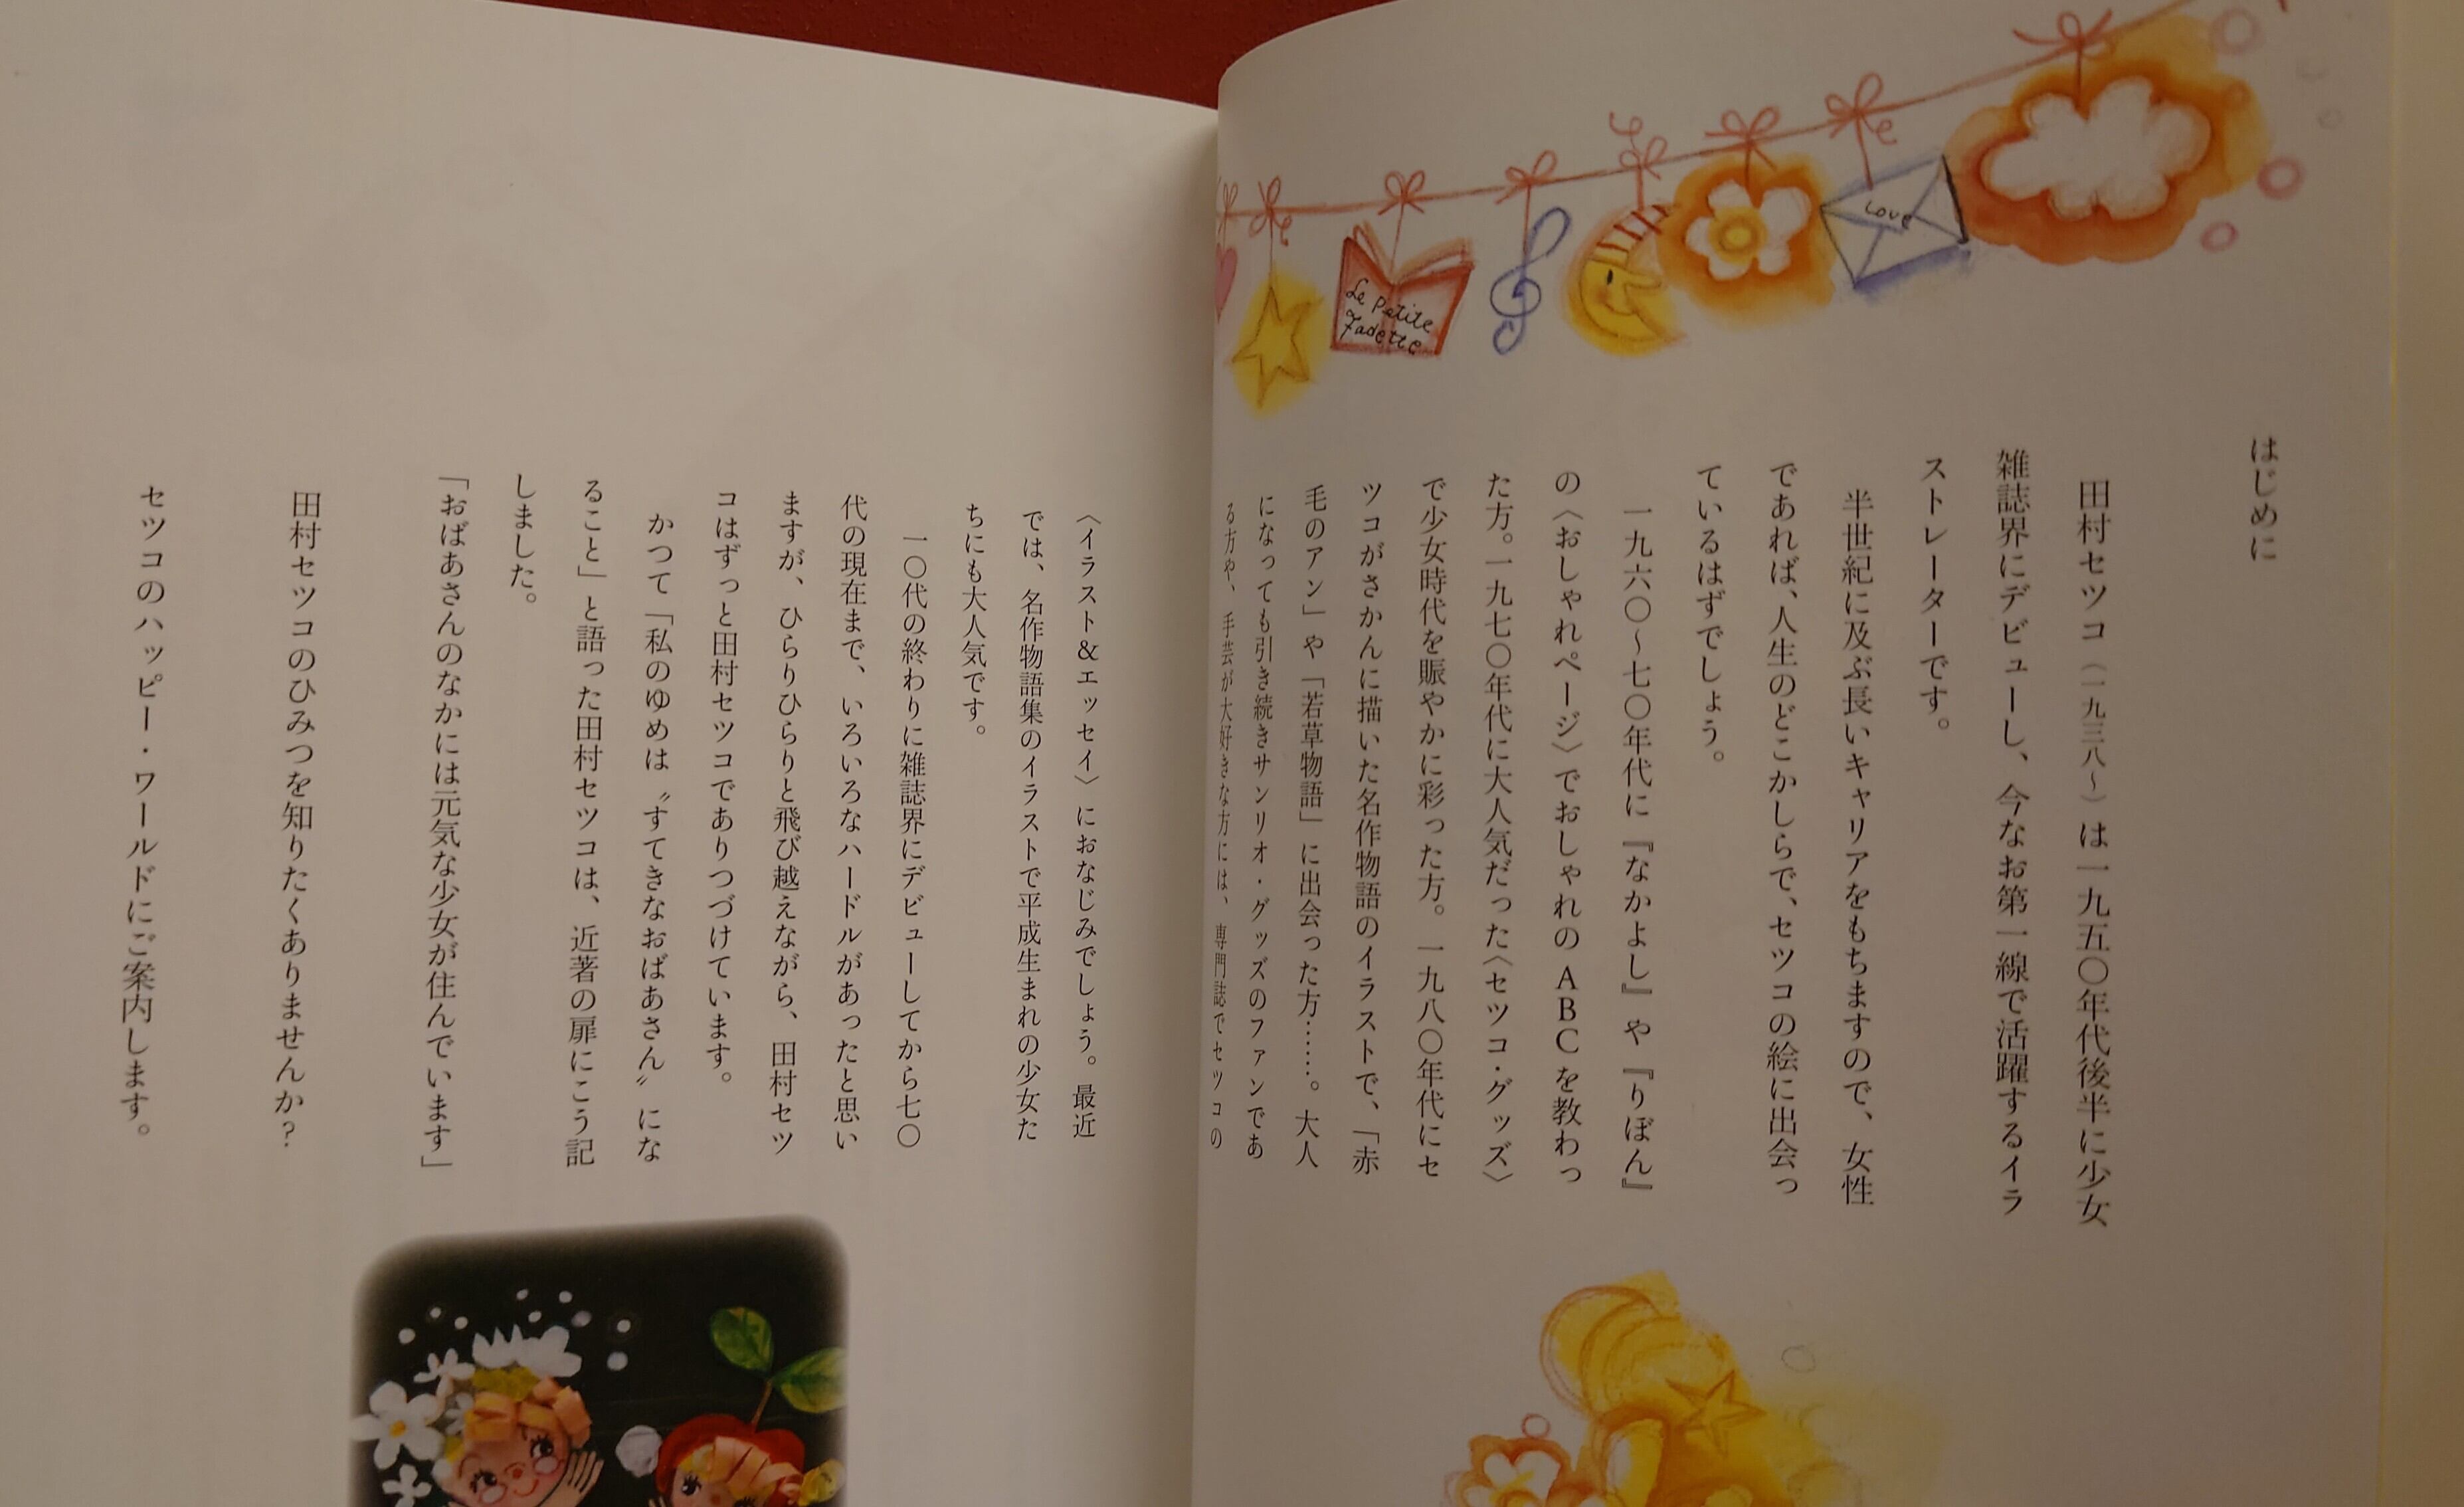 Love
Le Petite
Fadette
はじめに
田村セツコ（一九三八～）は一九五〇年代後半に少女
雑誌界にデビューし、今なお第一線で活躍するイラ
ストレーターです。
半世紀に及ぶ長いキャリアをもちますので、女性
であれば、人生のどこかしらで、セツコの絵に出会っ
ているはずでしょう。
一九六〇～七〇年代に『なかよし』や『りぼん』
の〈おしゃれページ〉でおしゃれのABCを教わっ
た方。一九七〇年代に大人気だった〈セツコ・グッズ〉
で少女時代を賑やかに彩った方。一九八〇年代にセ
ツコがさかんに描いた名作物語のイラストで、「赤
毛のアン」や「若草物語」に出会った方……。大人
になっても引き続きサンリオ・グッズのファンであ
る方や、手芸が大好きな方には、専門誌でセツコの
〈イラスト&エッセイ〉におなじみでしょう。最近
では、名作物語集のイラストで平成生まれの少女た
ちにも大人気です。
一〇代の終わりに雑誌界にデビューしてから七〇
代の現在まで、いろいろなハードルがあったと思い
ますが、ひらりひらりと飛び越えながら、田村セツ
コはずっと田村セツコでありつづけています。
かつて「私のゆめは〝すてきなおばあさん〟にな
ること」と語った田村セツコは、近著の扉にこう記
しました。
「おばあさんのなかには元気な少女が住んでいます」
田村セツコのひみつを知りたくありませんか？
セツコのハッピー・ワールドにご案内します。